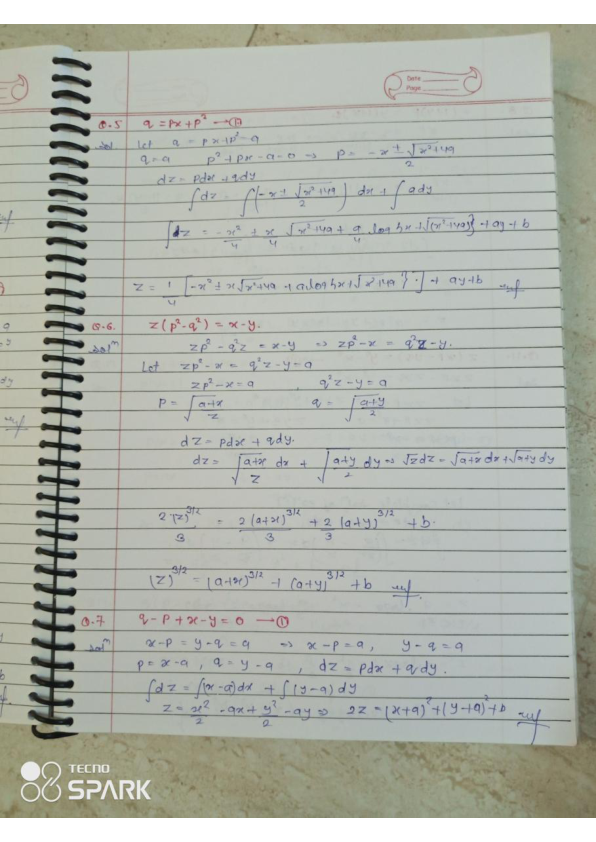 Date
Page
Q.5 q = px + p² → ①
Sol Let q = px + p² = a
q = a p² + px - a = 0 ⇒ p = -x ± √x²+4a / 2
dz = pdx + qdy
∫dz = ∫(-x ± √x²+4a / 2) dx + ∫ady
∫dz = -x²/4 ± x/4 √x²+4a + a/4 log{x+√(x²+4a)} + ay + b
z = 1/4 [-x² ± x√x²+4a + a log{x+√x²+4a}] + ay + b
Q.6. z(p²-q²) = x-y.
Solⁿ zp² - q²z = x-y ⇒ zp² - x = q²z - y.
Let zp² - x = q²z - y = a
zp² - x = a , q²z - y = a
p = √a+x/z q = √a+y/z
dz = pdx + qdy.
dz = √a+x/z dx + √a+y/z dy ⇒ √z dz = √a+x dx + √a+y dy
2(z)^3/2 / 3 = 2(a+x)^3/2 / 3 + 2/3 (a+y)^3/2 + b.
(z)^3/2 = (a+x)^3/2 + (a+y)^3/2 + b
Q.7 q - p + x - y = 0 → ①
Solⁿ x-p = y-q = a ⇒ x-p = a, y-q = a
p = x-a , q = y-a , dz = pdx + qdy.
∫dz = ∫(x-a)dx + ∫(y-a)dy
z = x²/2 - ax + y²/2 - ay ⇒ 2z = (x+a)² + (y+a)² + b
TECNO
SPARK